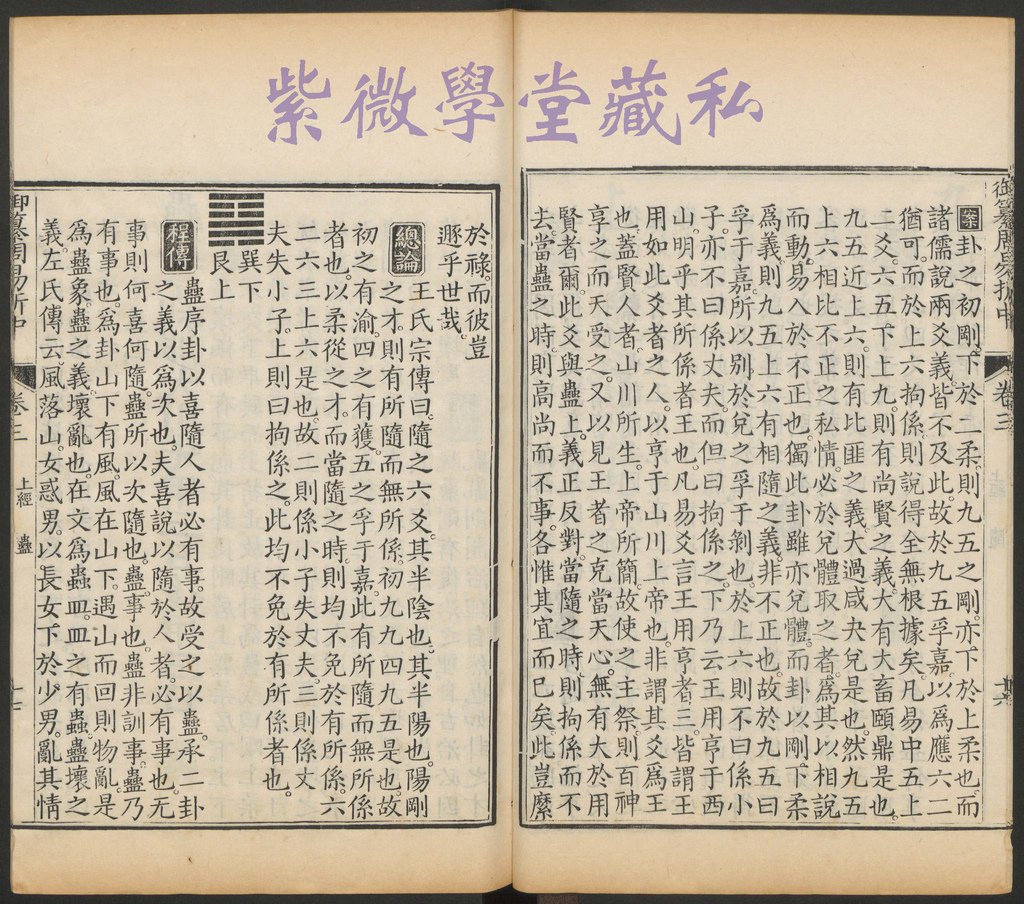 紫微學堂藏私
御纂周易折中 卷三
案 卦之初剛。下於二柔。則九五之剛。亦下於上柔也。而
諸儒說兩爻義。皆不及此。故於九五孚嘉。以爲應六二
猶可。而於上六拘係。則說得全無根據矣。凡易中五上
二爻。六五下上九。則有尚賢之義。大有大畜頤鼎是也。
九五近上六。則有比匪之義。大過咸夬兌是也。然九五
上六相比不正之私情。必於兌體取之者。爲其以相說
而動。易入於不正也。獨此卦雖亦兌體。而卦以剛下柔
爲義。則九五上六有相隨之義。非不正也。故於九五曰
孚于嘉。所以別於兌之孚于剝也。於上六則不曰係小
子。亦不曰係丈夫。而但曰拘係之。下乃云王用亨于西
山。明乎其所係者王也。凡易爻言王用亨者三。皆謂王
用如此爻者之人。以亨于山川上帝也。非謂其爻爲王
也。蓋賢人者。山川所生。上帝所簡。故使之主祭。則百神
享之。而天受之。又以見王者之克當天心。無有大於用
賢者爾。此爻與蠱上義正反對。當隨之時。則拘係而不
去。當蠱之時。則高尚而不事。各惟其宜而已矣。此豈縻
於祿。而彼豈
遯乎世哉。
總論 王氏宗傳曰。隨之六爻。其半陰也。其半陽也。陽剛
之才。則有所隨而無所係。初九九四九五是也。故
初之有渝。四之有獲。五之孚于嘉。此有所隨而無所係
者也。以柔從之才。而當隨之時。則均不免於有所係。六
二六三上六是也。故二則係小子失丈夫。三則係丈
夫失小子。上則曰拘係之。此均不免於有所係者也。
巽下
艮上
程傳 蠱序卦以喜隨人者必有事。故受之以蠱。承二卦
之義以爲次也。夫喜說以隨於人者。必有事也。无
事則何喜何隨。蠱所以次隨也。蠱。事也。蠱非訓事。蠱乃
有事也。爲卦山下有風。風在山下。遇山而回則物亂。是
爲蠱象。蠱之義。壞亂也。在文爲蟲皿。皿之有蟲。蠱壞之
義。左氏傳云。風落山。女惑男。以長女下於少男。亂其情
御纂周易折中 卷三 上經 蠱